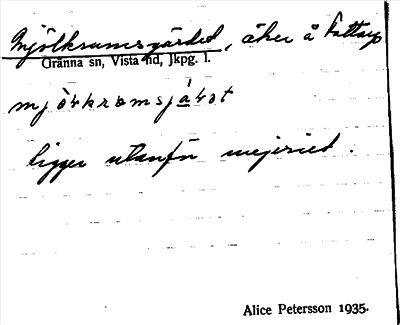 Mjölkramsgärdet, åker å Kattarp
Gränna sn, Vista hd, Jkpg. l.
mjöɫkramsjáɫət
ligger utanför mejeriet.
Alice Petersson 1935.